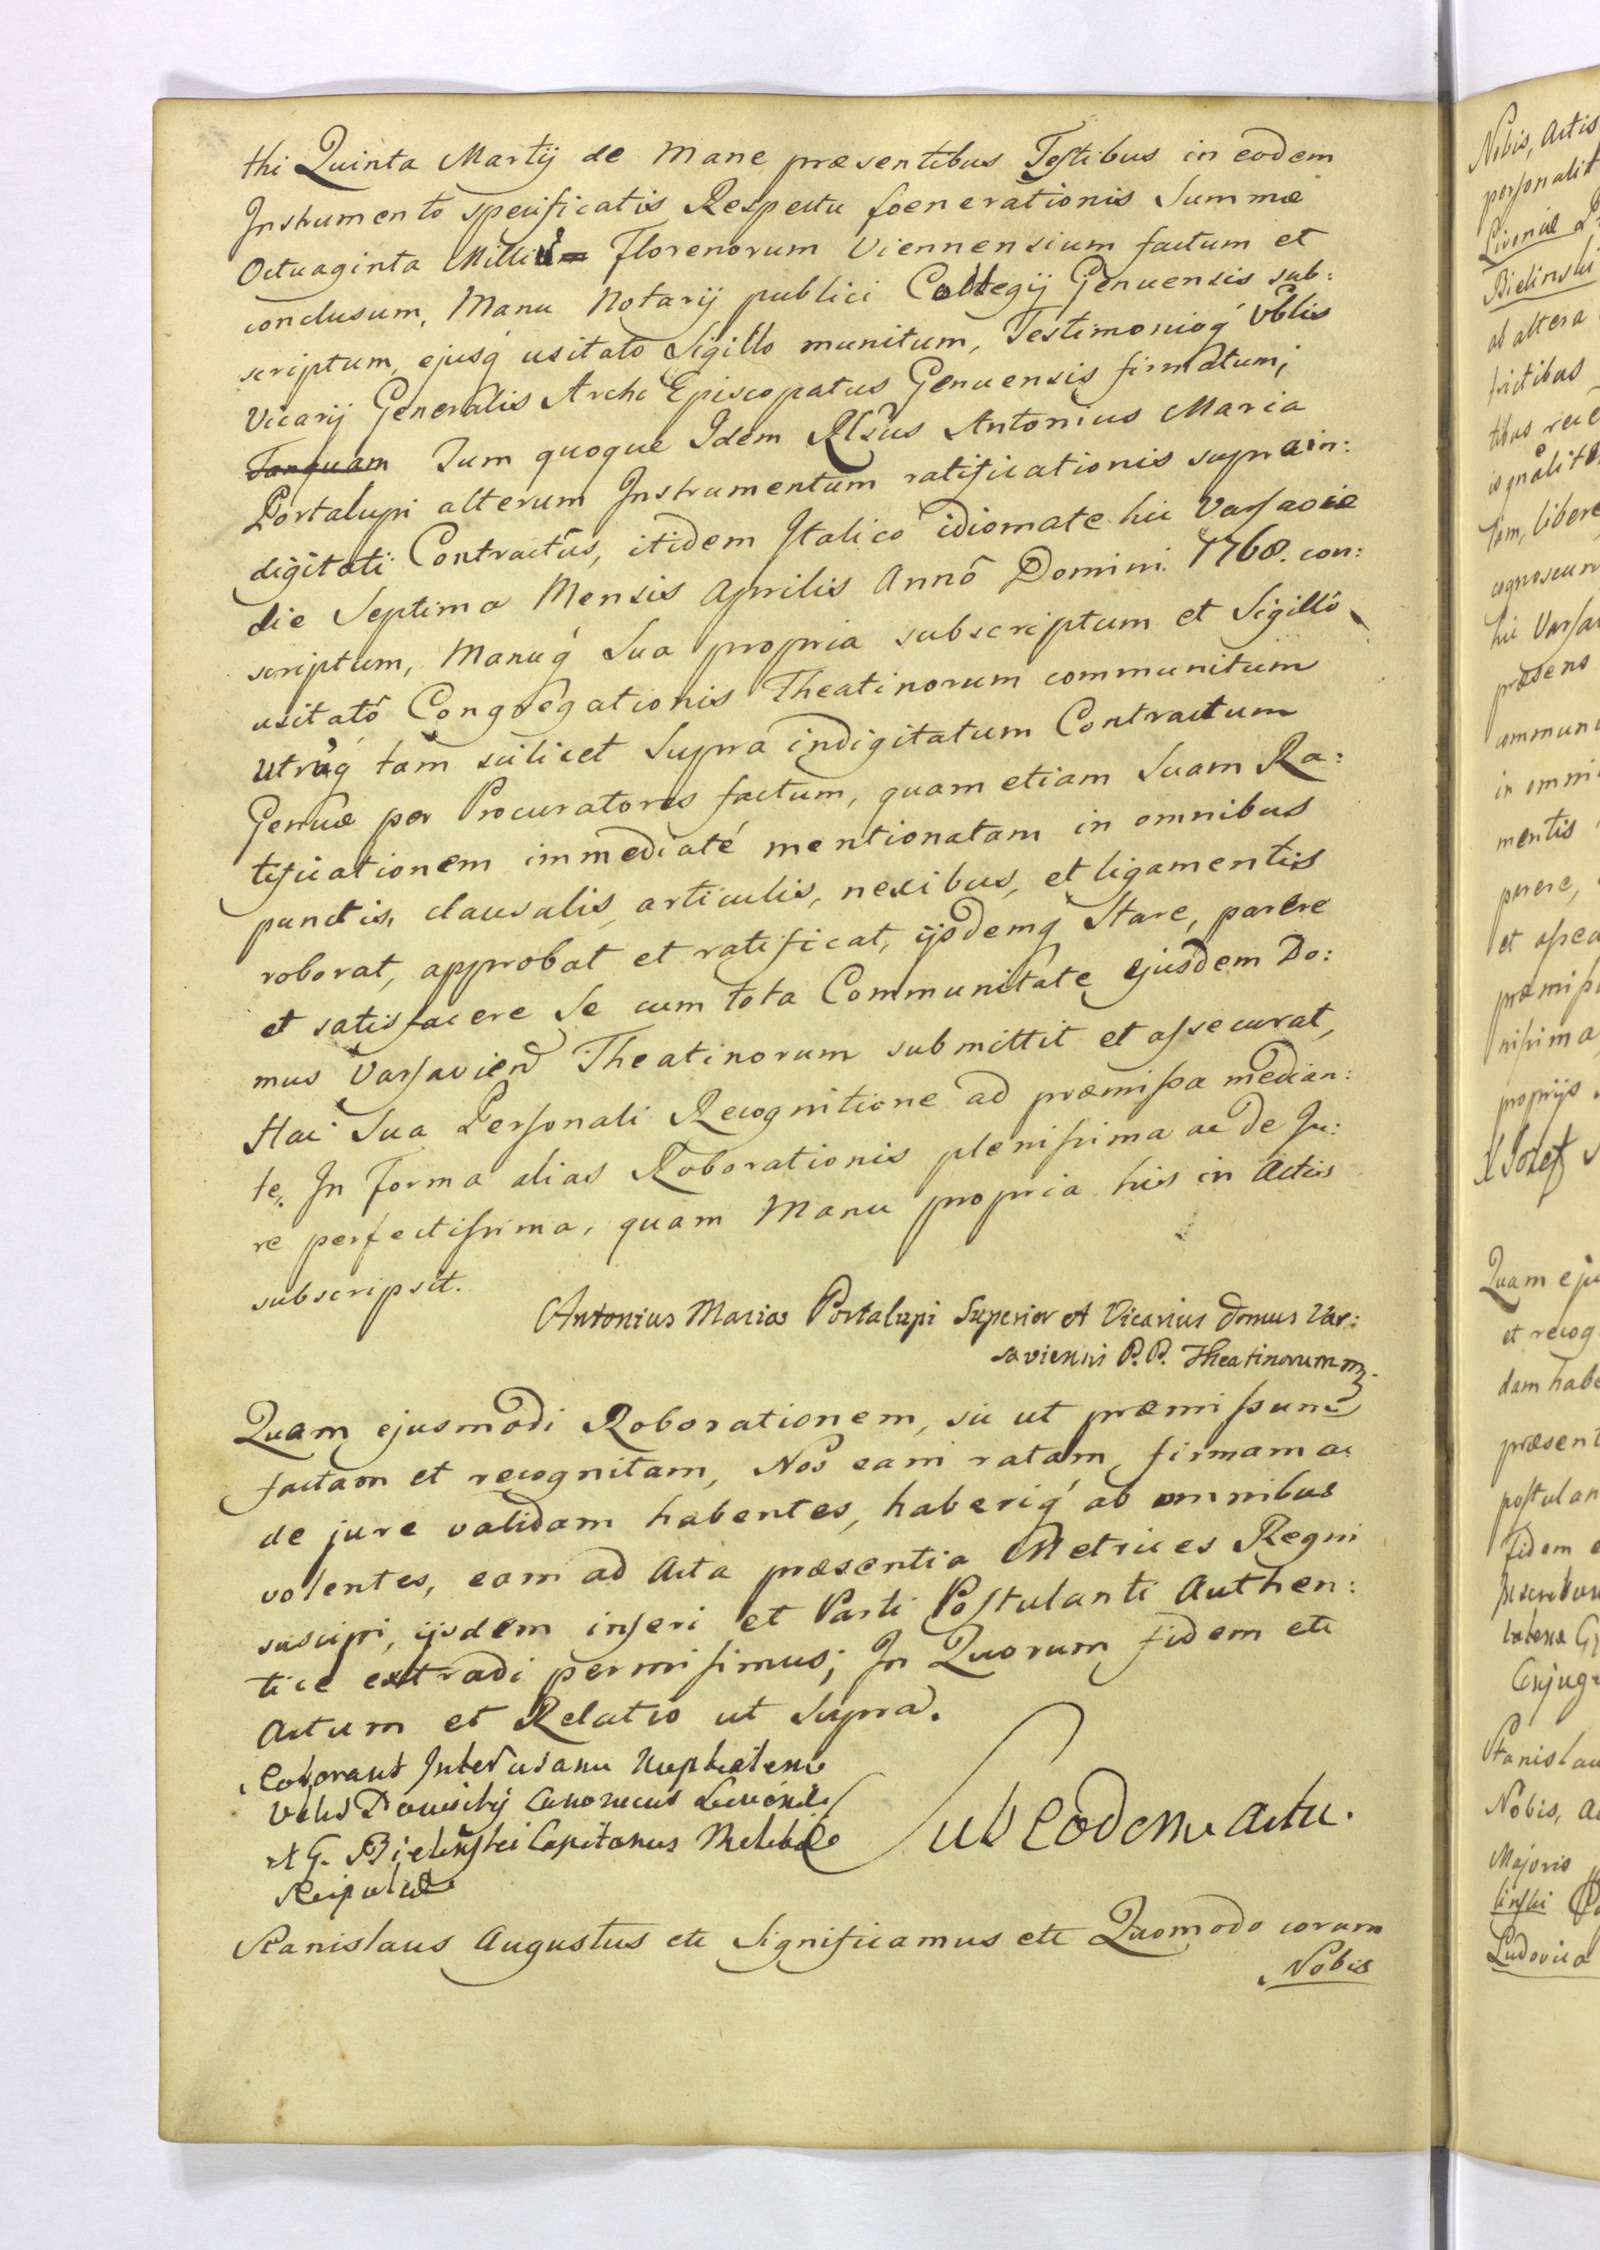 thi Quinta Martij de Mane præsentibus Testibus in eodem
Instrumento specificatis Respectu foenerationis Summæ
Octuaginta Milli Florenorum Viennensium factum et
conclusum, Manu Notarij publici Collegij Genuensis sub:
scriptum, ejusq́ usitato Sigillo munitum, Testimonioq́ Vblis
Vicarij Generalis Archi Episcopatus Genuensis firmatum;
Tanquam Tum quoque Idem Rlsus Antonius Maria
Portalupi alterum Instrumentum ratificationis suprain:
digitati Contractûs, itidem Italico idiomate hic Varsaviæ
die Septima Mensis Aprilis Annô Domini 1768. con:
scriptum, Manuq́ Sua propria subscriptum et Sigillô
usitatô Congregationis Theatinorum communitum
utrūq́ tam scilicet Supra indigitatum Contractum
Genuæ per Procuratores factum, quam etiam Suam Ra:
tificationem immediaté mentionatam in omnibus
punctis, clausulis, articulis, nexibus, et ligamentis
roborat, approbat et ratificat, ijsdemq́ Stare, parere
et satisfacere Se cum tota Communitate ejusdem Do:
mus Varsavien Theatinorum submittit et assecurat,
Hac Sua Personali Recognitione ad præmissa median:
te, In Forma alias Roborationis plenissima ac de Ju:
re perfectissima, quam Manu propria his in Actis
subscripsit.
Antonius Maria Portalupi Superior et Vicarius domus Var:
saviensis P.P. Theatinorum
Quam ejusmodi Roborationem, sic ut præmissum
factam et recognitam, Nos eam ratam, firmam ac
de jure validam habentes, haberiq́ ab omnibus
volentes, eam ad Acta præsentia Metrices Regni
suscipi, ijsdem inseri et Parti Postulanti Authen:
tice extradi permisimus; In Quorum fidem etc
Actum et Relatio ut Supra.
Roborant
et G. Bielinski Capitaneus
Sub Eodem Actu.
Stanislaus Augustus etc Significamus etc Quomodo coram
Nobis
Nobis, Actis
personalit
Livoniæ
Bielinski
ab altera
tam, libere
hic Varsav
præsens
communi
in omni
mentis
parere,
et assec
præmiss
nissima
proprijs
Jozef
Quam eju
et recog
dam habe
præsent
postulan
fidem e
Conjug
Stanislau
Nobis, A
Majoris
linski
Ludovica